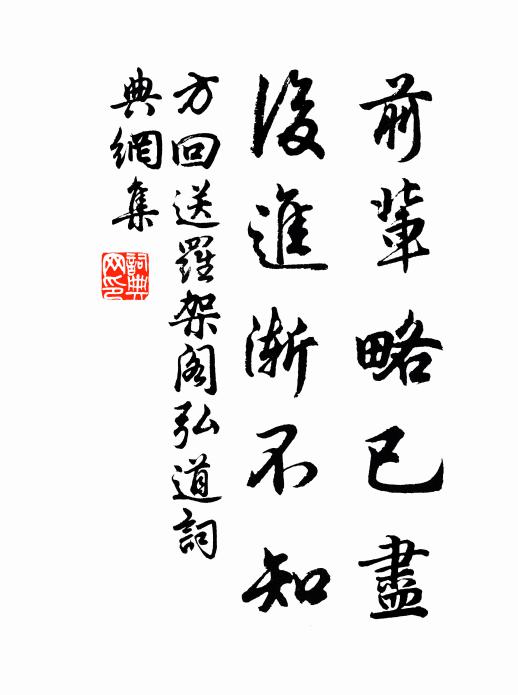 前輩略已盡
後進漸不知
方回送羅架閣弘道詞
典網集
詞典
网印